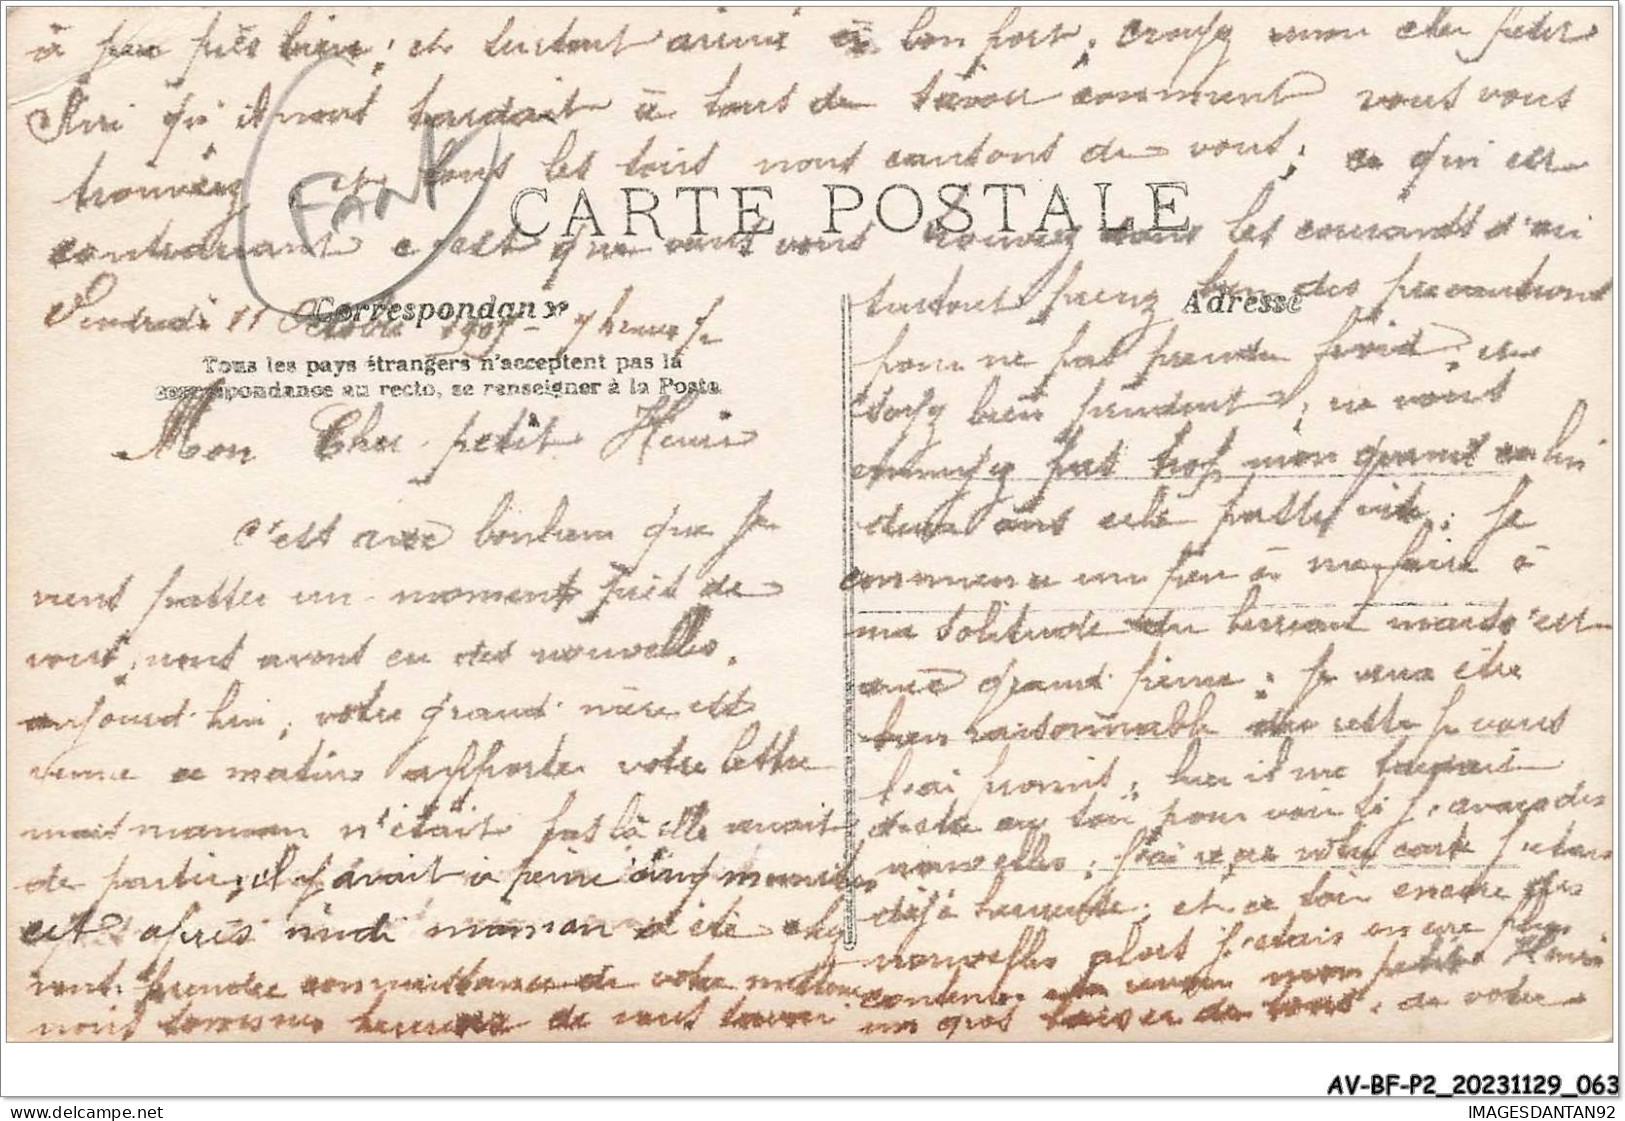 à peu près bien ; et surtout arrivé à bon port, croyez mon cher petit
qu'il nous tardait à tous de savoir comment vous vous
trouviez et tous les soirs nous causons de vous ; ce qui est
contrariant c'est que vous vous trouvez dans les courants d'air
FANK
CARTE POSTALE
Correspondance
Adresse
Tous les pays étrangers n'acceptent pas la
correspondance au recto, se renseigner à la Poste
Vendredi 11 Octobre 1907 - 7 heures
Mon Cher petit Henri
c'est avec bonheur que je
viens passer un moment près de
vous, nous avons eu des nouvelles
aujourd'hui, votre grand-mère est
venue ce matin apporter votre lettre
mais maman n'était pas là elle venait
de partir, il y avait à peine cinq minutes
cet après midi maman a été chez
vous prendre connaissance de votre
nous sommes heureux de vous savoir
surtout prenez bien des précautions
pour ne pas prendre froid, et
soyez bien prudent, ne vous
ennuyez pas trop mon grand
deux ans cela passe vite. Je
commence un peu à me faire à
ma solitude du bureau mais c'est
avec grand peine ; je veux être
bien raisonnable du reste je vous
l'ai promis ; hier il me tardait
d'être au soir pour voir si j'avais des
nouvelles ; j'ai reçu votre carte j'étais
déjà heureuse, et ce soir encore des
nouvelles alors j'étais encore plus
contente, mon petit Henri
un gros baiser de tous, de votre
AV-BF-P2_20231129_063
www.delcampe.net
IMAGESDANTAN92